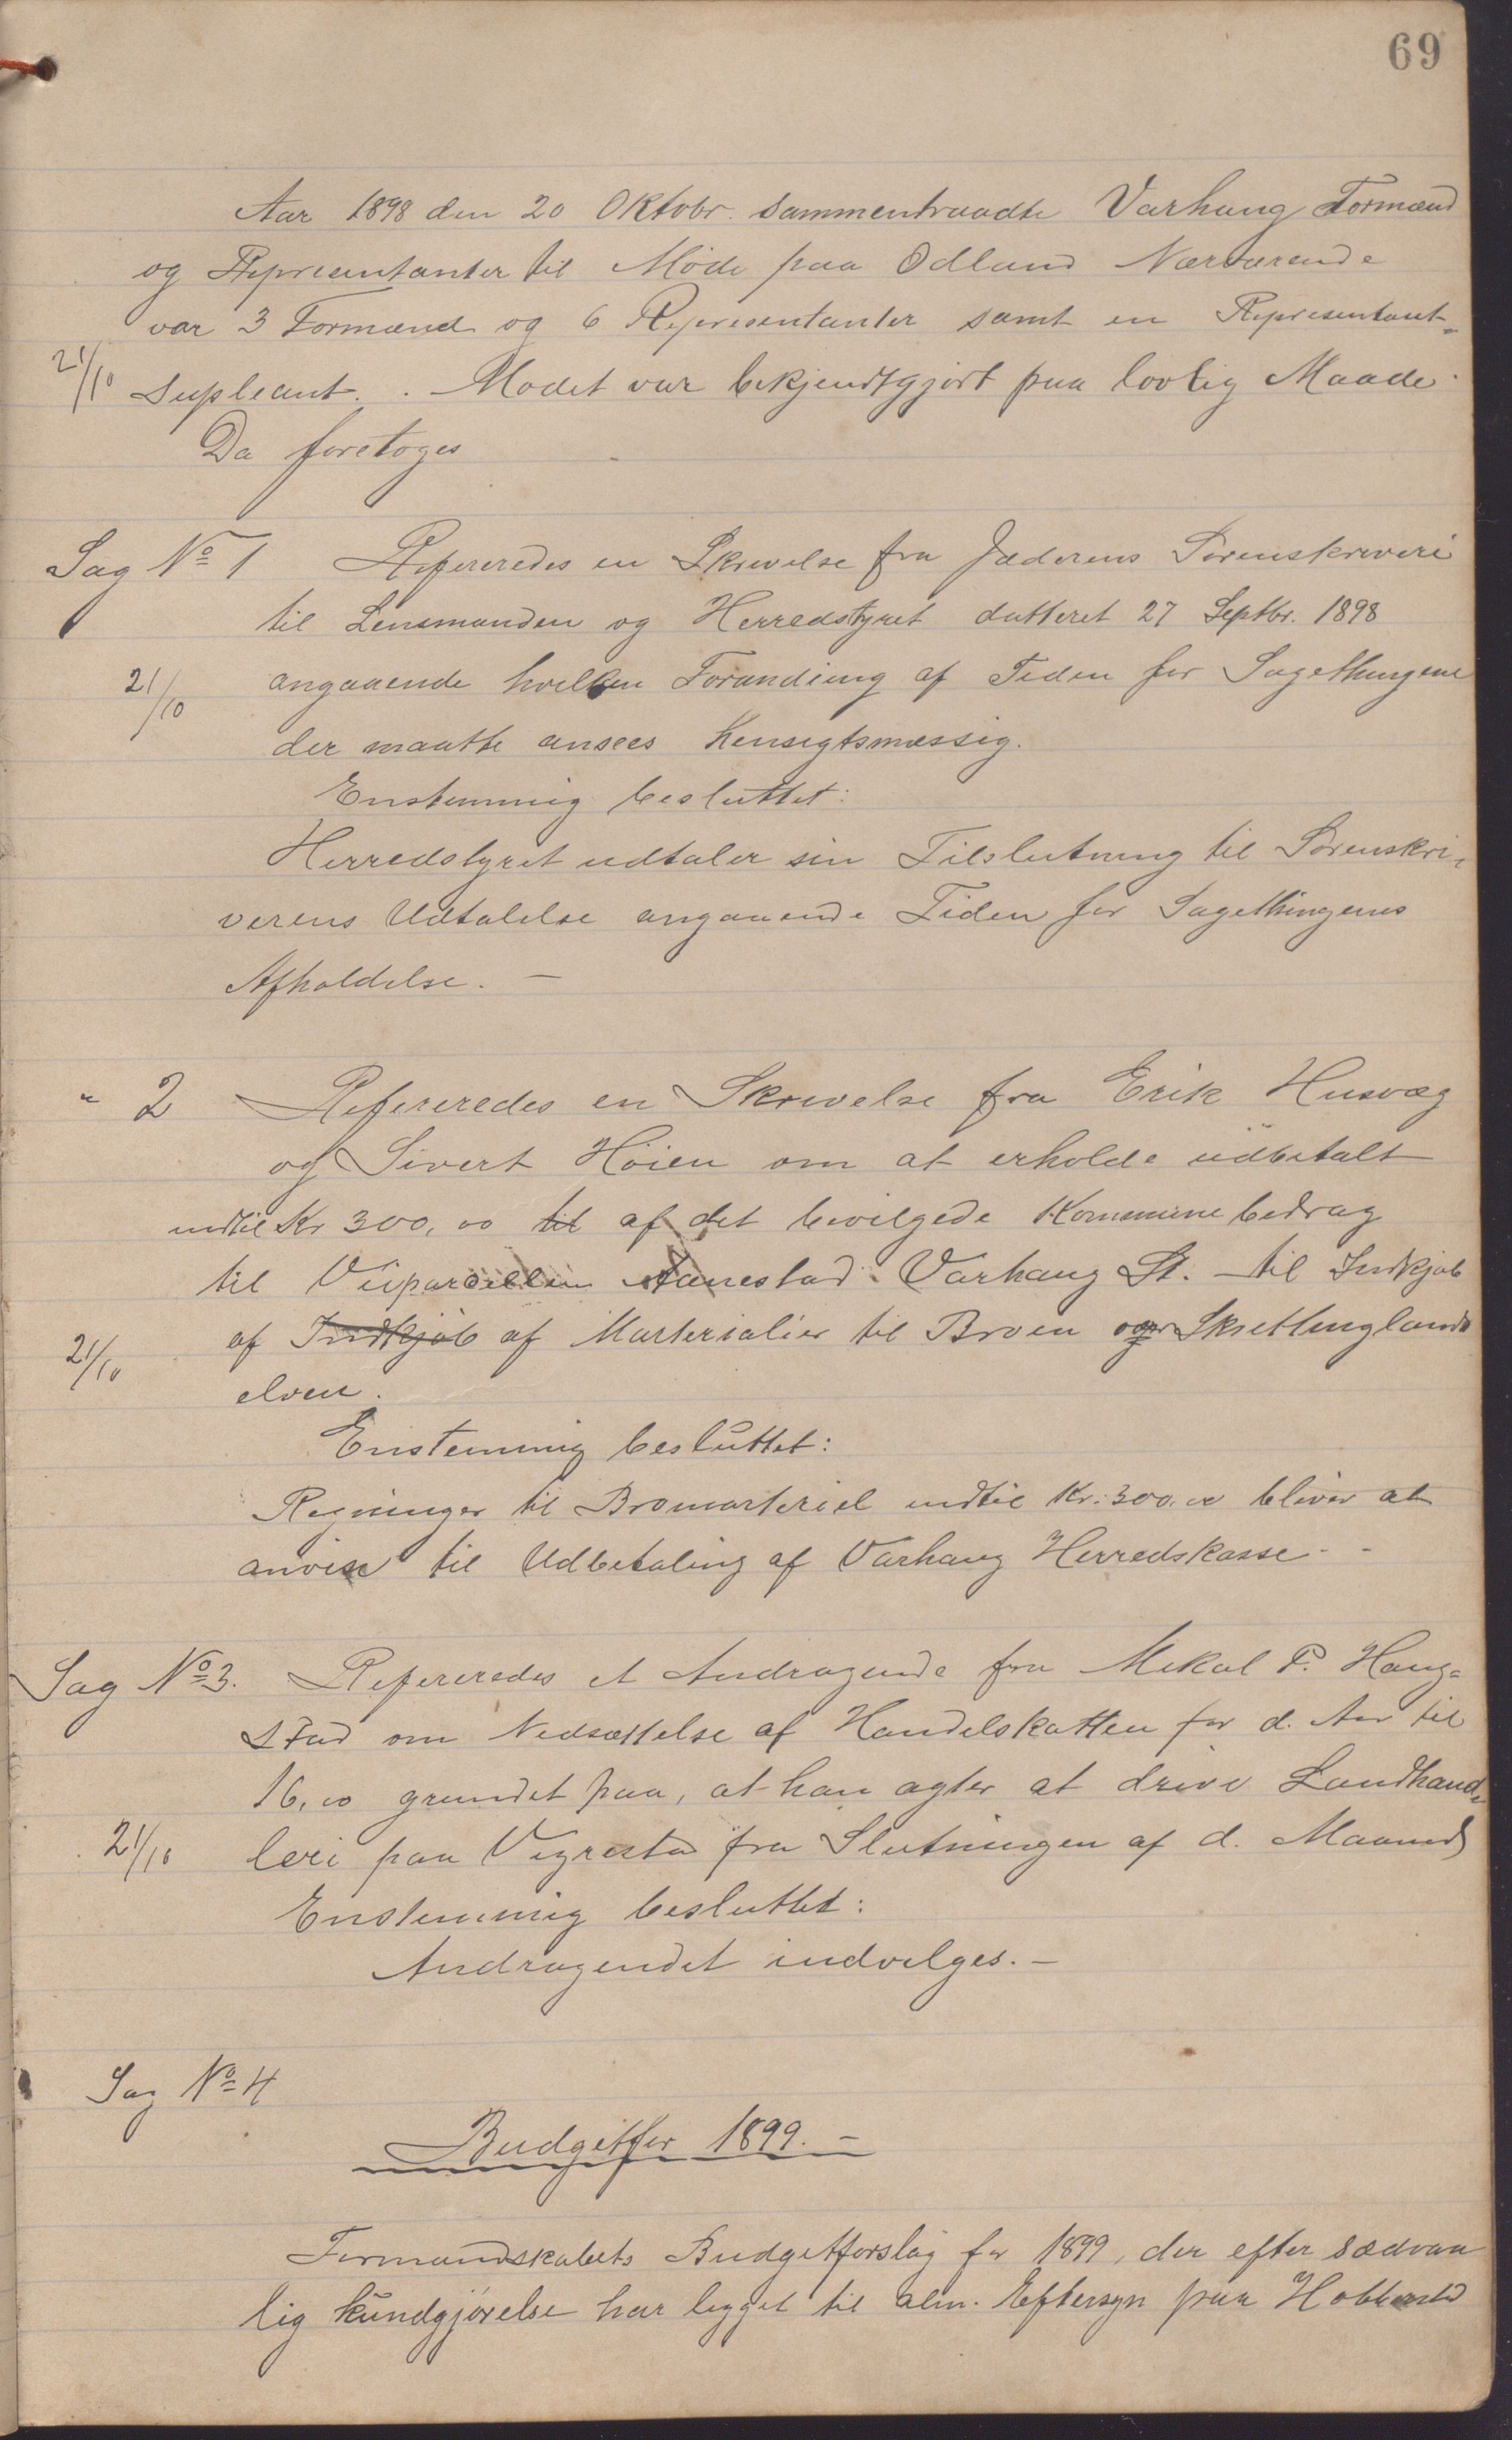 69
Aar 1898 den 20 Oktobr. sammentraadte Varhaug Formænd
og Repræsentanter til Møde paa Odland Nærværende
var 3 Formænd og 6 Representanter samt en Representant-
21/10 Supleant. . Mødet var bekjendtgjort paa lovlig Maade.
Da foretoges
Sag No 1 Refereredes en Skrivelse fra Jæderens Sorenskriveri
til Lensmanden og Herredstyret datteret 27 Septbr. 1898
21/10 angaaende hvilken Forandring af Tiden for Sagethingene
der maatte ansees hensigtsmæssig.
Enstemmig besluttet:
Herredstyret udtaler sin Tilslutning til Sorenskri-
verens Udtalelse angaaende Tiden for Sagethingenes
Afholdelse. —
" 2 Refereredes en Skrivelse fra Erik Husvæg
og Sivert Høien om at erholde udbetalt
indtil Kr 300,00 til af det bevilgede Kommunebedrag
til Veiparcellen Aanestad Varhaug St. — til Indkjøb
af Indkjøb af Marterialier til Broen over Skretlinglands
21/10
elven.
Enstemmig besluttet:
Regninger til Bromarteriel indtil Kr. 300,00 bliver at
anvise til Udbetaling af Varhaug Herredskasse. -
Sag No 3. Refereredes et Andragende fra Mikal P. Haug-
stad om Nedsættelse af Handelskatten for d. Aar til
16,00 grundet paa, at han agter at drive Landhand-
21/10 leri paa Vigrestad fra Slutningen af d. Maaned
Enstemmig besluttet:
Andragendet indvilges. —
Sag No 4
Budget for 1899. —
Formandskabets Budgetforslag for 1899, der efter sædvan
lig kundgjørelse har ligget til alm. Eftersyn paa